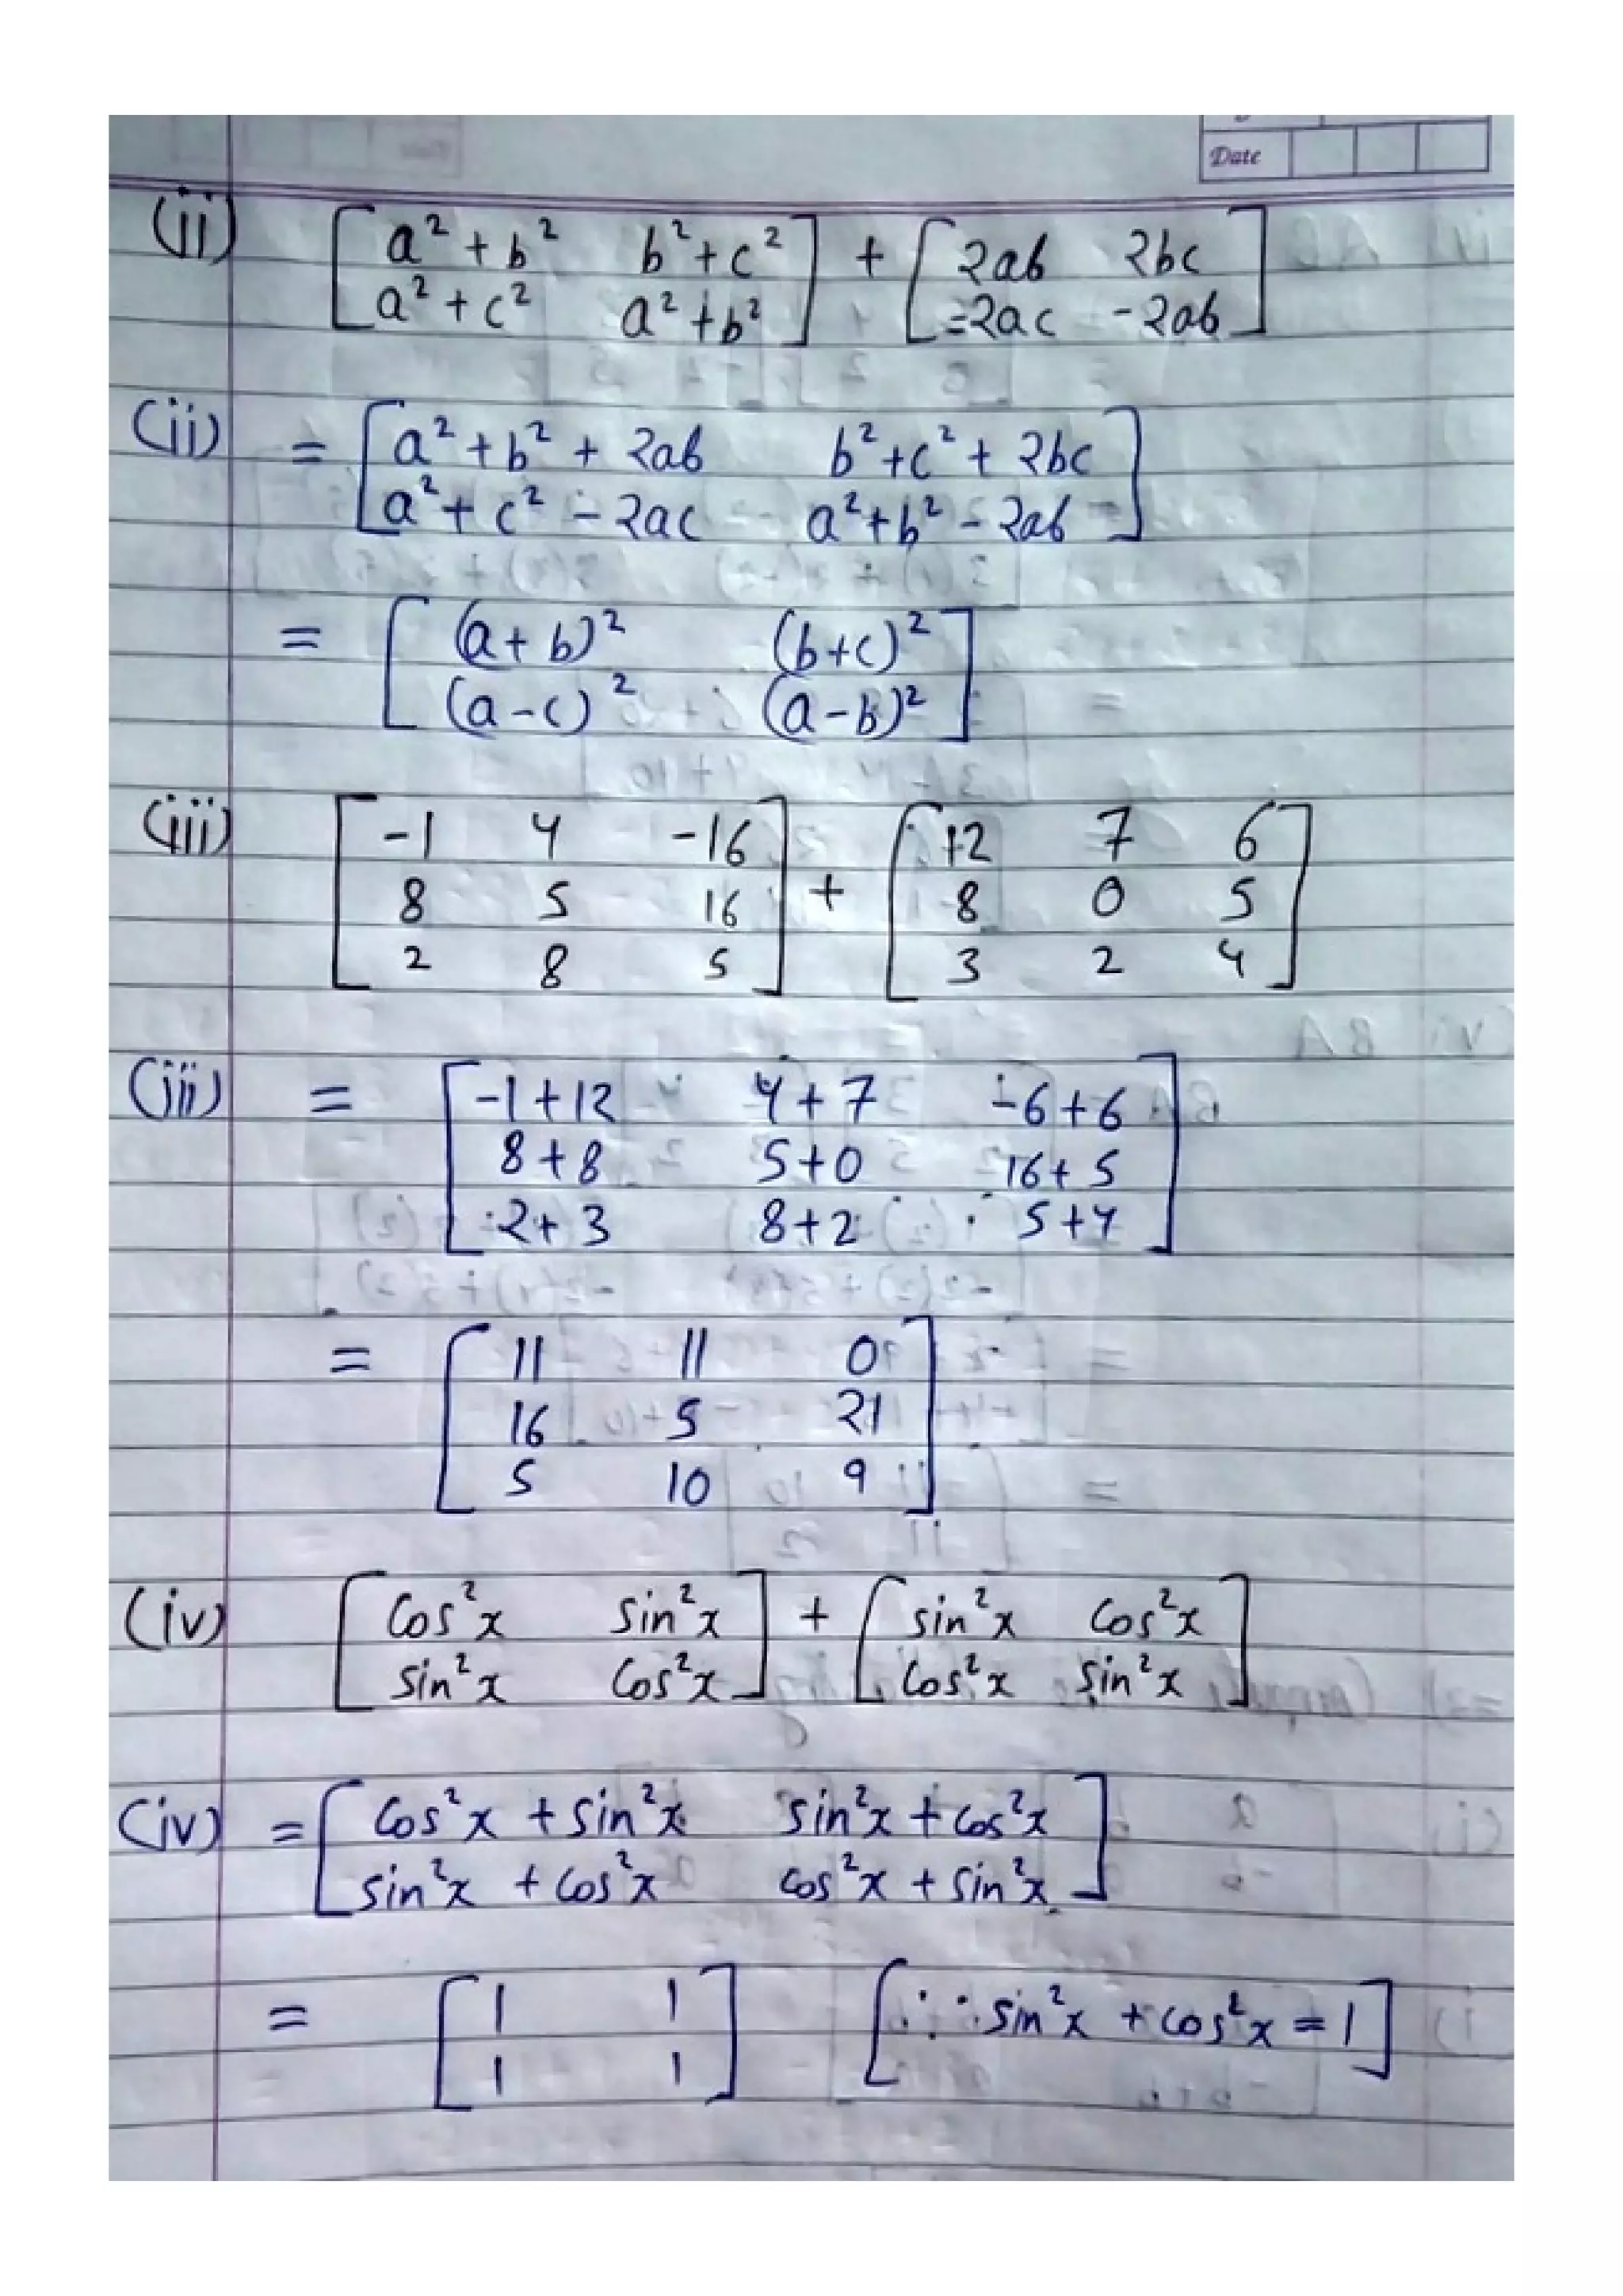 Date
(ii) [ a² + b² b² + c² ] + [ 2ab 2bc ]
[ a² + c² a² + b² ] [ -2ac -2ab ]
(ii) = [ a² + b² + 2ab b² + c² + 2bc ]
[ a² + c² - 2ac a² + b² - 2ab ]
= [ (a + b)² (b + c)² ]
[ (a - c)² (a - b)² ]
(iii) [ -1 4 -16 ] + [ 12 7 6 ]
[ 8 5 16 ] [ 8 0 5 ]
[ 2 8 5 ] [ 3 2 4 ]
(iii) = [ -1 + 12 4 + 7 -6 + 6 ]
[ 8 + 8 5 + 0 16 + 5 ]
[ 2 + 3 8 + 2 5 + 4 ]
= [ 11 11 0 ]
[ 16 5 21 ]
[ 5 10 9 ]
(iv) [ Cos²x Sin²x ] + [ sin²x Cos²x ]
[ sin²x Cos²x ] [ Cos²x sin²x ]
(iv) = [ Cos²x + sin²x sin²x + Cos²x ]
[ sin²x + Cos²x cos²x + sin²x ]
= [ 1 1 ] [ ∵ sin²x + cos²x = 1 ]
[ 1 1 ]